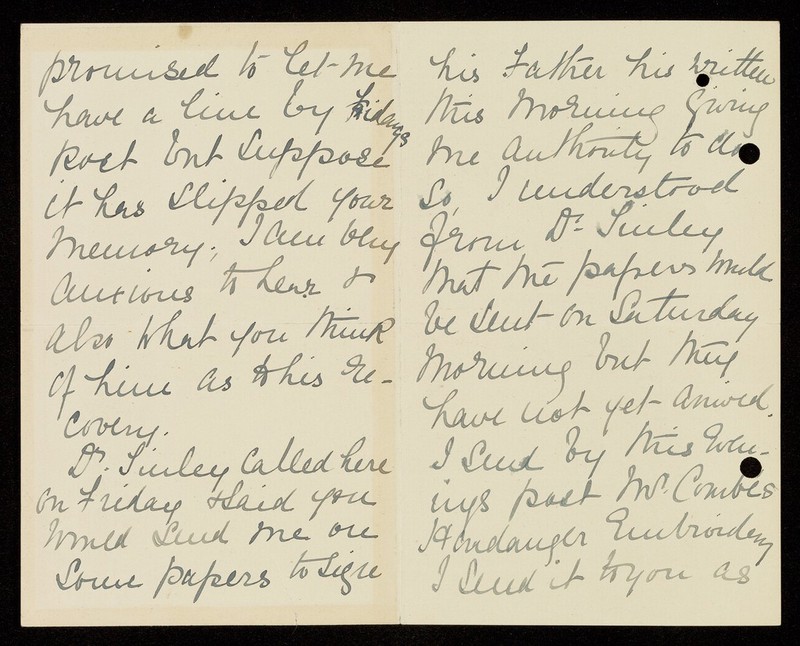 promised to let me
have a line by Fridays
post but suppose
it has slipped your
memory; I am very
anxious to hear &
also what you think
of him as to his re-
covery.
Dr. Sinley called here
on Friday & said you
would send me on
some papers to sign
his Father his written
this morning giving
me authority to do
so, I understood
from Dr. Sinley
that the papers would
be sent on Saturday
morning but they
have not yet arrived.
I send by this even-
ings post Mr. Combes
Hardanger Embroidery
I send it to you as